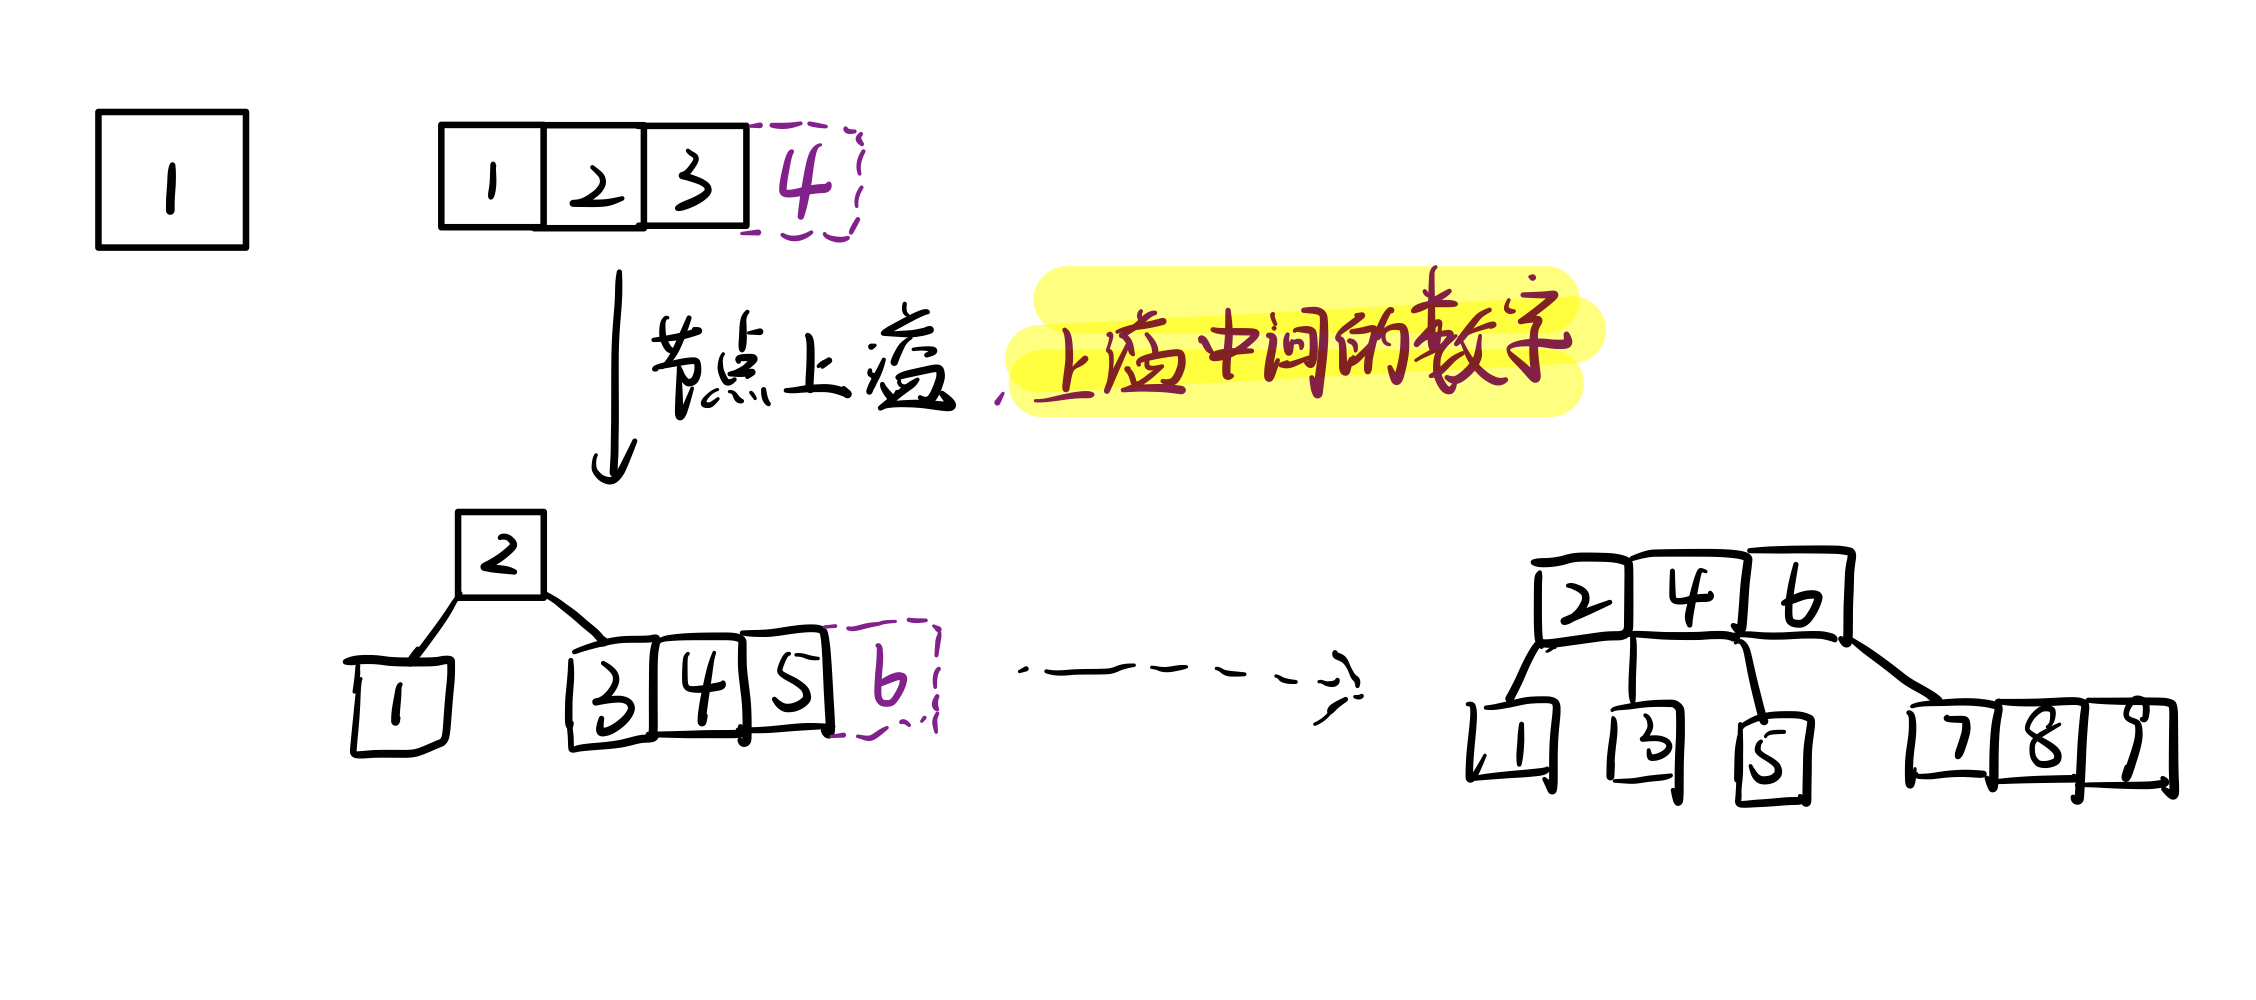 1
1 2 3 4
节点上溢 上溢中间的数字
2
1 3 4 5 6
2 4 6
1 3 5 7 8 9